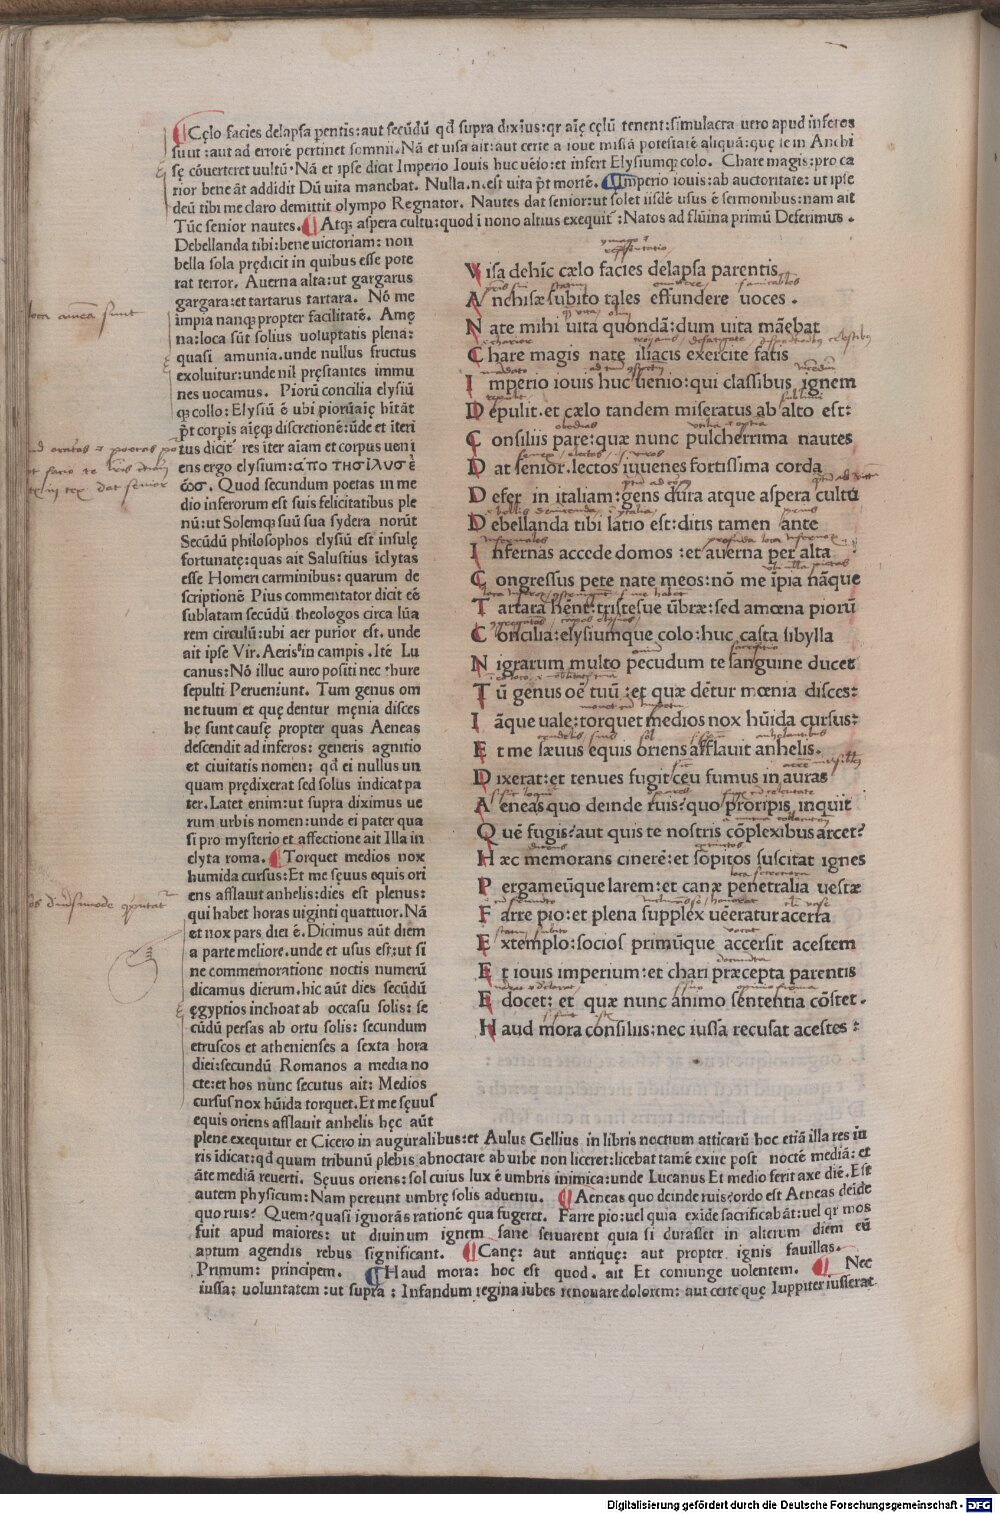 Cęlo facies delapsa pentis: aut secūdū qđ supra diximus: qr aię cęlū tenent: simulacra uero apud inferos
sunt: aut ad errorē pertinet somnii. Nā et uisa ait: aut certe a ioue missā potestatē aliquā: quę se in Anchi
sę cōuerteret uultū. Nā et ipse dicit Imperio Iouis huc uēio: et infert Elysiumq; colo. Chare magis: pro ca
rior bene āt addidit Dū uita manebat. Nulla .n. est uita p̄t mortē. Imperio iouis: ab auctoritate: ut ipse
deū tibi me claro demittit olympo Regnator. Nautes dat senior: ut solet iisdē usus ē sermonibus: nam ait
Tūc senior nautes. Atq; aspera cultu: quod i nono altius exequit̄: Natos ad flūina primū Deferimus.
Debellanda tibi: bene uictoriam: non
bella sola prędicit in quibus esse pote
rat terror. Auerna alta: ut gargarus
gargara: et tartarus tartara. Nō me
impia nanq; propter facilitatē. Amę
na: loca sūt solius uoluptatis plena:
quasi amunia. unde nullus fructus
exoluitur: unde nil pręstantes immu
nes uocamus. Piorū concilia elysiū
q; collo: Elysiū ē ubi piorū aię hītāt
p̄t corpis aięq; discretionē: ūde et iteri
tus dicit̄ res iter aīam et corpus ueni
ens ergo elysium: απο τησ ιλυσε
ωσ. Quod secundum poetas in me
dio inferorum est suis felicitatibus ple
nū: ut Solemq; suū sua sydera norūt
Secūdū philosophos elysiū est insulę
fortunatę: quas ait Salustius iclytas
esse Homeri carminibus: quarum de
scriptionē Pius commentator dicit eē
sublatam secūdū theologos circa lūa
rem circulū: ubi aer purior est. unde
ait ipse Vir. Aeris in campis. Itē Lu
canus: Nō illuc auro positi nec thure
sepulti Perueniunt. Tum genus om
ne tuum et quę dentur męnia disces
he sunt causę propter quas Aeneas
descendit ad inferos: generis agnitio
et ciuitatis nomen: qđ ei nullus un
quam prędixerat sed solus indicat pa
ter. Latet enim: ut supra diximus ue
rum urbis nomen: unde ei pater qua
si pro mysterio et affectione ait Illa in
clyta roma. Torquet medios nox
humida cursus: Et me sęuus equis ori
ens afflauit anhelis: dies est plenus:
qui habet horas uiginti quattuor. Nā
et nox pars diei ē. Dicimus aūt diem
a parte meliore. unde et usus est: ut si
ne commemoratione noctis numerū
dicamus dierum. hic aūt dies secūdū
ęgyptios inchoat ab occasu solis: se
cūdū persas ab ortu solis: secundum
etruscos et athenienses a sexta hora
diei: secundū Romanos a media no
cte: et hos nunc secutus ait: Medios
cursus nox hūida torquet. Et me sęuus
equis oriens afflauit anhelis hęc aūt
plene exequitur et Cicero in auguralibus: et Aulus Gellius in libris noctium atticarū hoc etiā illa res in
ris idicat: qđ quum tribunū plebis abnoctare ab urbe non liceret: licebat tamē exire post noctē mediā: et
āte mediā reuerti. Sęuus oriens: sol cuius lux ē umbris inimica: unde Lucanus Et medio ferit axe diē. Est
autem physicum: Nam pereunt umbrę solis aduentu. Aeneas quo deinde ruis? ordo est Aeneas deīde
quo ruis? Quem? quasi ignorās rationē qua fugeret. Farre pio: uel quia exide sacrificabāt: uel qr mos
fuit apud maiores: ut diuinum ignem sane seruarent quia si durasset in alterum diem eū
aptum agendis rebus significant. Canę: aut antiquę: aut propter ignis fauillas.
Primum: principem. Haud mora: hoc est quod. ait Et coniunge uolentem. Nec
iussa: uoluntatem: ut supra: Infandum regina iubes renouare dolorem: aut certe quę Iuppiter iusserat
Visa dehīc cælo facies delapsa parentis
Anchisæ subito tales effundere uoces.
Nate mihi uita quondā: dum uita māebat
Chare magis nate iliacis exercite fatis
Imperio iouis huc uenio: qui classibus ignem
Depulit. et cælo tandem miseratus ab alto est:
Consiliis pare: quæ nunc pulcherrima nautes
Dat senior. lectos iuuenes fortissima corda
Defer in italiam: gens dura atque aspera cultu
Debellanda tibi latio est: ditis tamen ante
Infernas accede domos: et auerna per alta
Congressus pete nate meos: nō me īpia nāque
Tartara hēnt: tristesue ūbræ: sed amœna piorū
Concilia: elysiumque colo: huc casta sibylla
Nigrarum multo pecudum te sanguine ducet
Tū genus oē tuū: et quæ dētur mœnia disces:
Iāque uale: torquet medios nox hūida cursus:
Et me sæuus equis oriens afflauit anhelis.
Dixerat: et tenues fugit ceu fumus in auras
Aeneas quo deinde ruis? quo proripis inquit
Quē fugis? aut quis te nostris cōplexibus arcet?
Hæc memorans cinerē: et sopitos suscitat ignes
Pergameūque larem: et canæ penetralia uestæ
Farre pio: et plena supplex uēeratur acerra
Extemplo: socios primūque accersit acestem
Et iouis imperium: et chari præcepta parentis
Edocet: et quæ nunc animo sententia cōstet.
Haud mora consiliis: nec iussa recusat acestes:
loca amena sunt
Digitalisierung gefördert durch die Deutsche Forschungsgemeinschaft - DFG